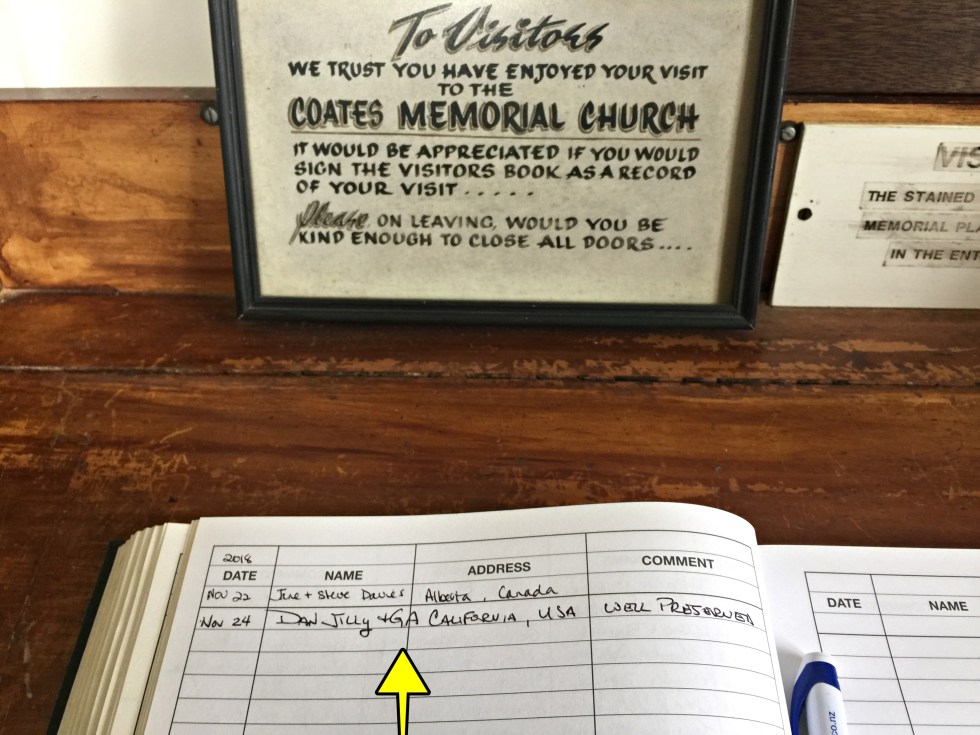 To Visitors
WE TRUST YOU HAVE ENJOYED YOUR VISIT
TO THE
COATES MEMORIAL CHURCH
IT WOULD BE APPRECIATED IF YOU WOULD
SIGN THE VISITORS BOOK AS A RECORD
OF YOUR VISIT.....
Please, ON LEAVING, WOULD YOU BE
KIND ENOUGH TO CLOSE ALL DOORS....
VIS
THE STAINED
MEMORIAL PLA
IN THE ENT
2018
DATE NAME ADDRESS COMMENT
NOV 22 June + Steve Davies Alberta, Canada
Nov 24 DAN JILLY +GA CALIFORNIA, USA WELL PRESERVED
DATE NAME
co.nz